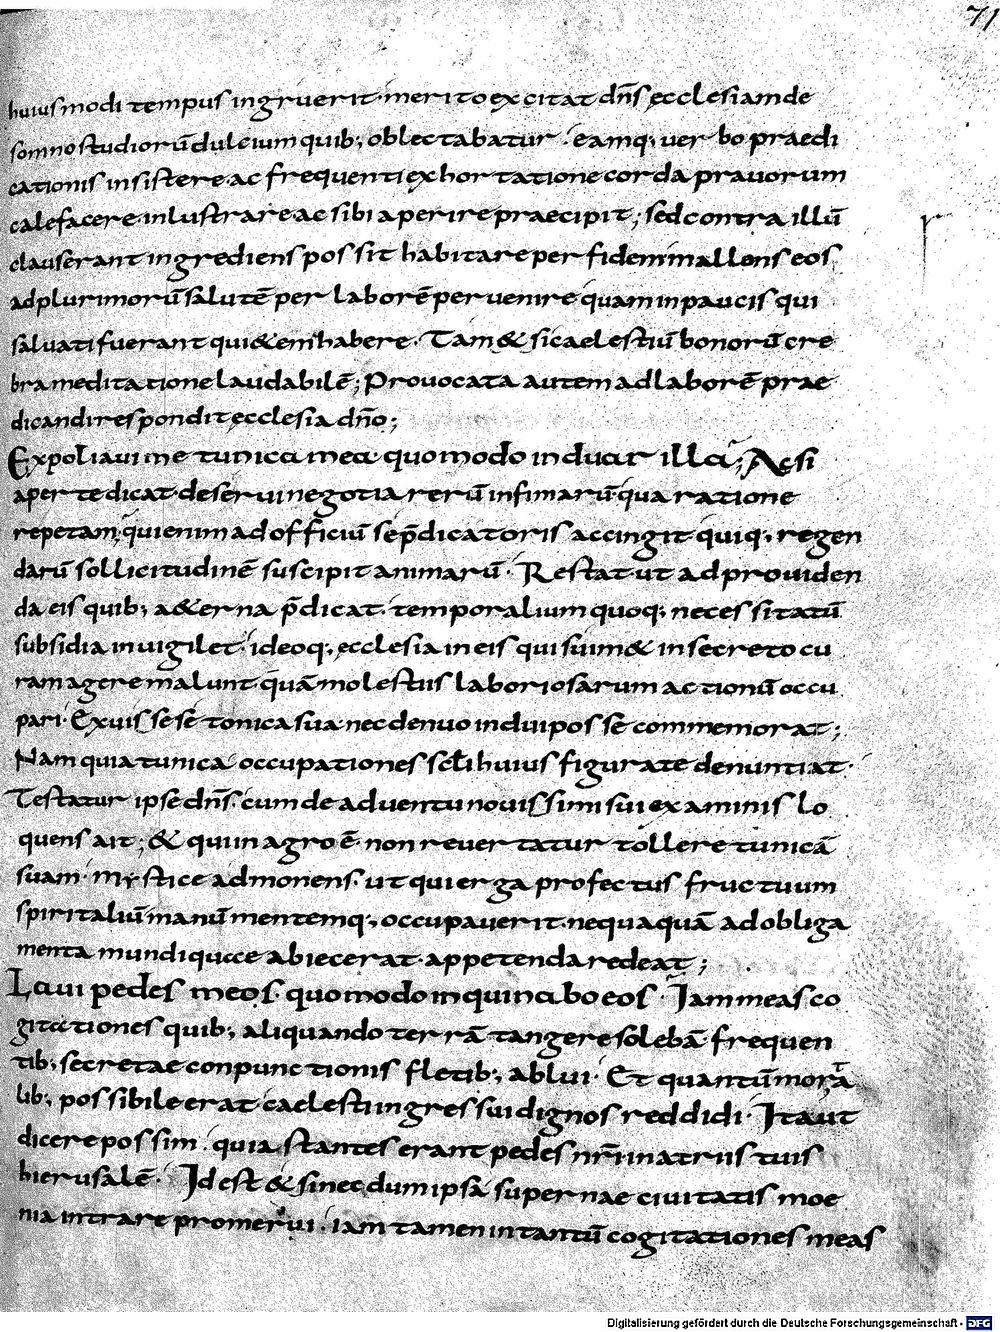 71
huiusmodi tempus ingruerit· merito excitat dn̄s ęcclesiam de
somno studiorū dulcium quib; oblectabatur· eamq; uerbo praedi
cationis insistere ac frequenti exhortatione corda prauorum
calefacere inlustrare ac sibi aperire praecipit; sed contra illū
clauserant ingrediens possit habitare per fidem mallens eos
ad plurimorū salutē per laborē peruenire quam in paucis qui
saluati fuerant quietem habere· Tam & si caelestiū bonorū cre
bra meditatione laudabilē; Prouocata autem ad laborē prae
dicandi respondit ęcclesia dn̄o;
Expoliaui me tunica mea quomodo induar illa; Ac si
aperte dicat· deserui negotia rerū infimarū· qua ratione
repetam; qui enim ad officiū se p̄dicatoris accingit quiq; regen
darū sollicitudinē suscipit animarū· Restat ut ad prouiden
da eis quib; a&erna p̄dicat· temporalium quoq; necessitatū
subsidia inuigilet· ideoq; ęcclesia in eis qui sui m& in secreto cu
ram agere malunt· quā molestiis laboriosarum actionū occu
pari· Exuisse se tonica sua nec denuo indui posse commemorat;
Nam quia tunica occupationes scl̄i huius figurate denuntiat·
Testatur ipse dn̄s· cum de aduentu nouissimi sui examinis lo
quens ait; & qui in agro ē· non reuertatur tollere tunicā
suam· mystice admonens· ut qui erga profectus fructuum
spiritaliū manū mentemq; occupauerit· nequaquā ad obliga
menta mundi quae abiecerat· appetenda redeat;
Laui pedes meos· quomodo inquinabo eos· Iam meas co
gitationes quib; aliquando terrā tangere solebā frequen
tib; secretae conpunctionis fletib; ablui· Et quantū morta
lib; possibile erat caelesti ingressui dignos reddidi· Ita ut
dicere possim· quia stantes erant pedes nr̄i in atriis tuis
hierusalē· Id est & si necdum ipsa supernae ciuitatis moe
nia intrare promerui· iam tamen in tantū cogitationes meas
Digitalisierung gefördert durch die Deutsche Forschungsgemeinschaft - DFG